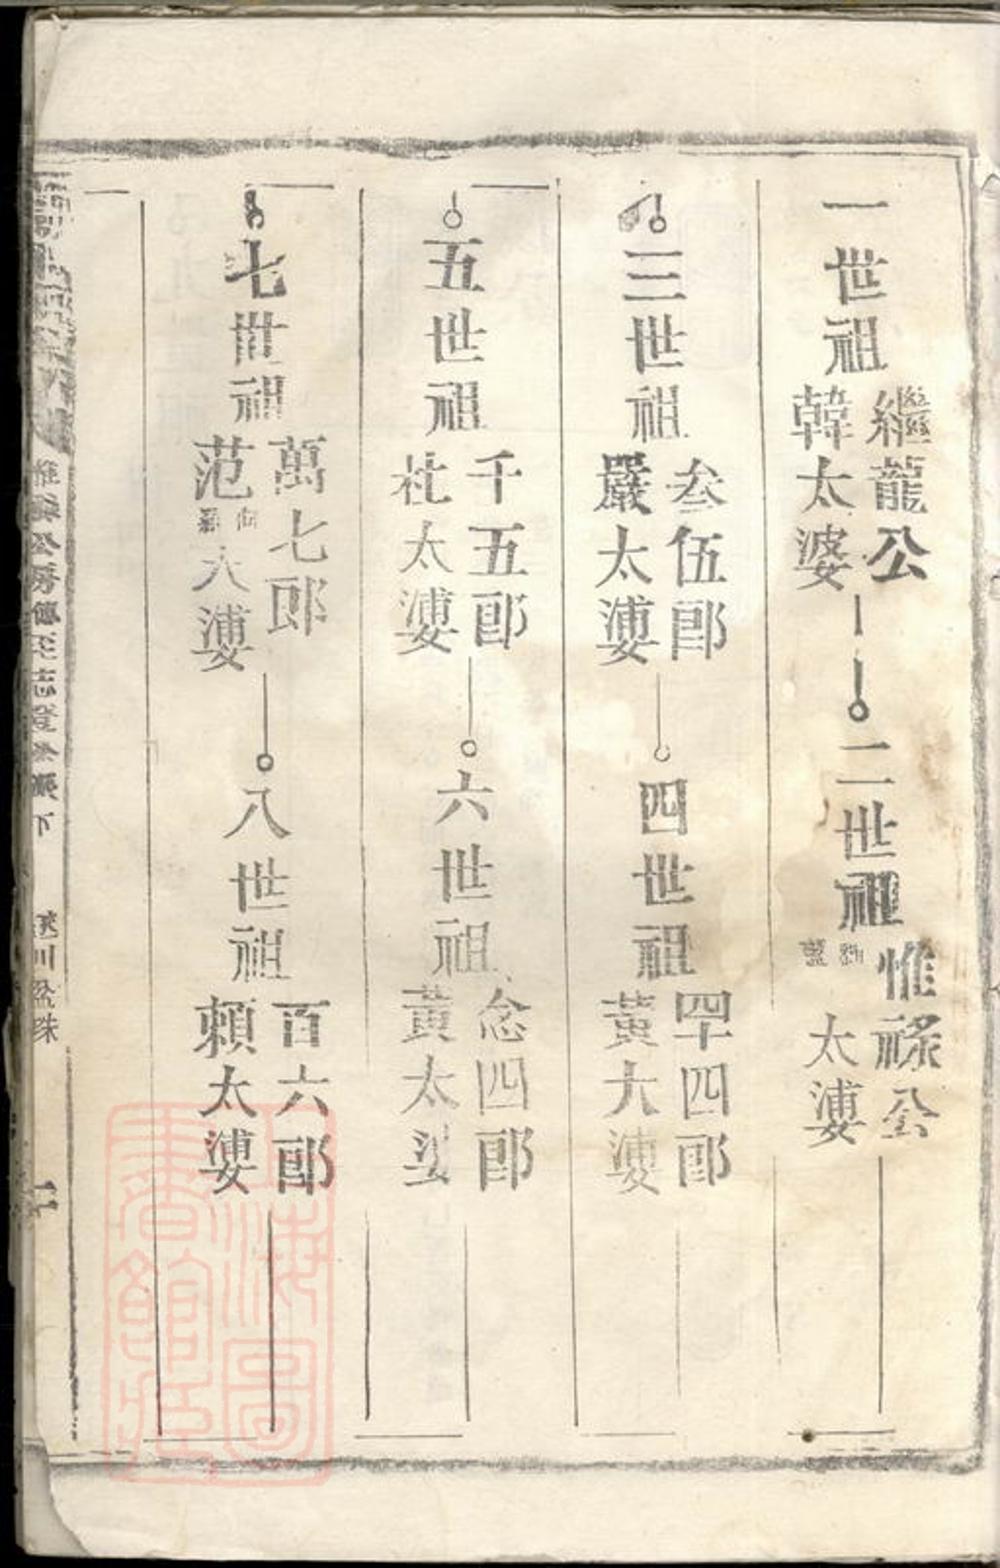 一世祖
繼龍公
韓太婆
二世祖
惟祿公
太婆
三世祖
叁伍郎
嚴太婆
四世祖
四郎
黃太婆
五世祖
千五郎
杜太婆
六世祖
念四郎
黃太婆
七世祖
萬七郎
范太婆
八世祖
百六郎
賴太婆
惟祿公房
上海圖書館藏